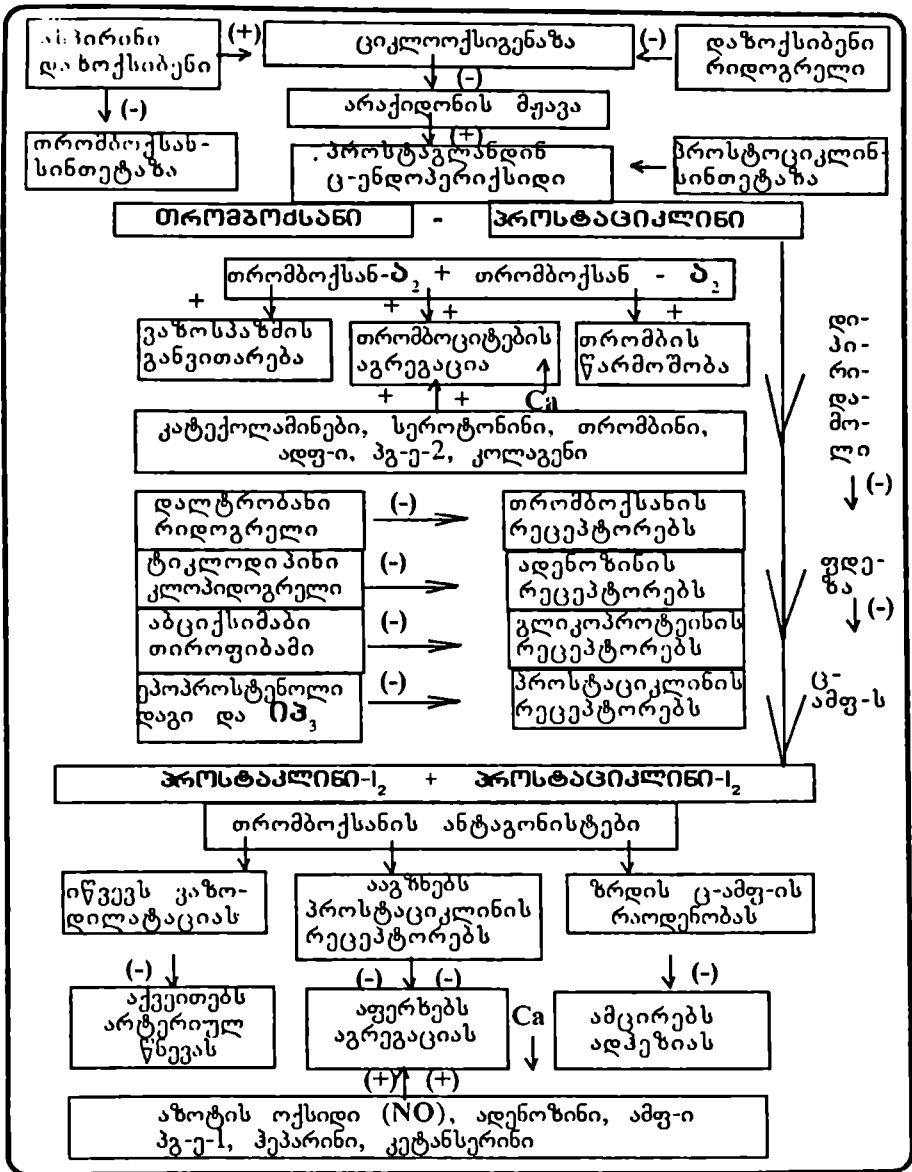 ასპირინი (+) ციკლოოქსიგენაზა (-) დაზოქსიბენი
დაზოქსიბენი რიდოგრელი
(-) (-)
არაქიდონის მჟავა
(+)
თრომბოქსან-
სინთეტაზა
პროსტაგლანდინ
ც-ენდოპერიქსიდი
პროსტოციკლინ-
სინთეტაზა
თრომბოქსანი - პროსტაციკლინი
თრომბოქსან-ა₂ + თრომბოქსან - ა₂
+ + + +
ვაზოსპაზმის
განვითარება
თრომბოციტების
აგრეგაცია
თრომბის
წარმოშობა
+ + Ca
კატექოლამინები, სეროტონინი, თრომბინი,
ადფ-ი, პგ-ე-2, კოლაგენი
დი-
პი-
რი-
და-
მო-
ლი
(-)
ფდე-
ზა
(-)
ც-
ამფ-ს
დალტრობანი (-) თრომბოქსანის
რიდოგრელი რეცეპტორებს
ტიკლოდიპინი (-) ადენოზინის
კლოპიდოგრელი რეცეპტორებს
აბციქსიმაბი (-) გლიკოპროტეინის
თიროფიბამი რეცეპტორებს
ეპოპროსტენოლი (-) პროსტაციკლინის
დაგი და იპ₃ რეცეპტორებს
პროსტაკლინი-I₂ + პროსტაციკლინი-I₂
თრომბოქსანის ანტაგონისტები
იწვევს ვაზო-
დილატაციას
ააგზნებს
პროსტაციკლინის
რეცეპტორებს
ზრდის ც-ამფ-ის
რაოდენობას
(-) (-) (-) (-)
აქვეითებს
არტერიულ
წნევას
აფერხებს
აგრეგაციას
Ca
ამცირებს
ადჰეზიას
(+) (+)
აზოტის ოქსიდი (NO), ადენოზინი, ამფ-ი
პგ-ე-1, ჰეპარინი, კეტანსერინი